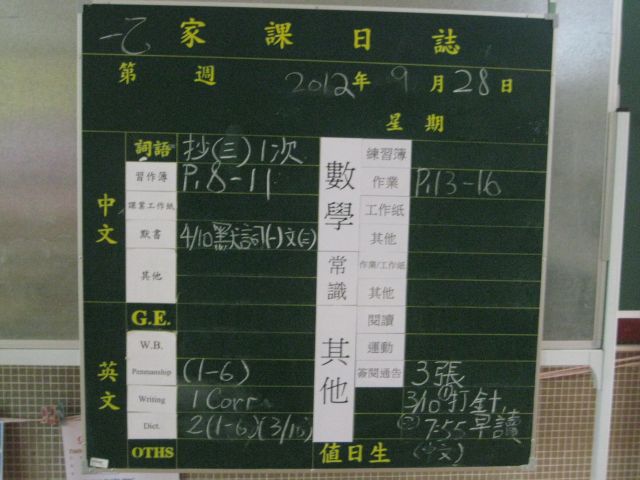 一乙 家課日誌
第 週 2012年 9月28日
星期
中文
詞語 抄(三)1次
習作簿 P.8-11
課業工作紙
默書 4/10默詞(一)文(二)
其他
英文
G.E.
W.B.
Penmanship (1-6)
Writing 1 Corr.
Dict. 2(1-6)(3/10)
OTHS
數學
練習簿
作業 P.13-16
工作紙
其他
常識
作業/工作紙
其他
其他
閱讀
運動
簽閱通告 3張
3/10①打針
②7:55早讀
值日生 (中文)